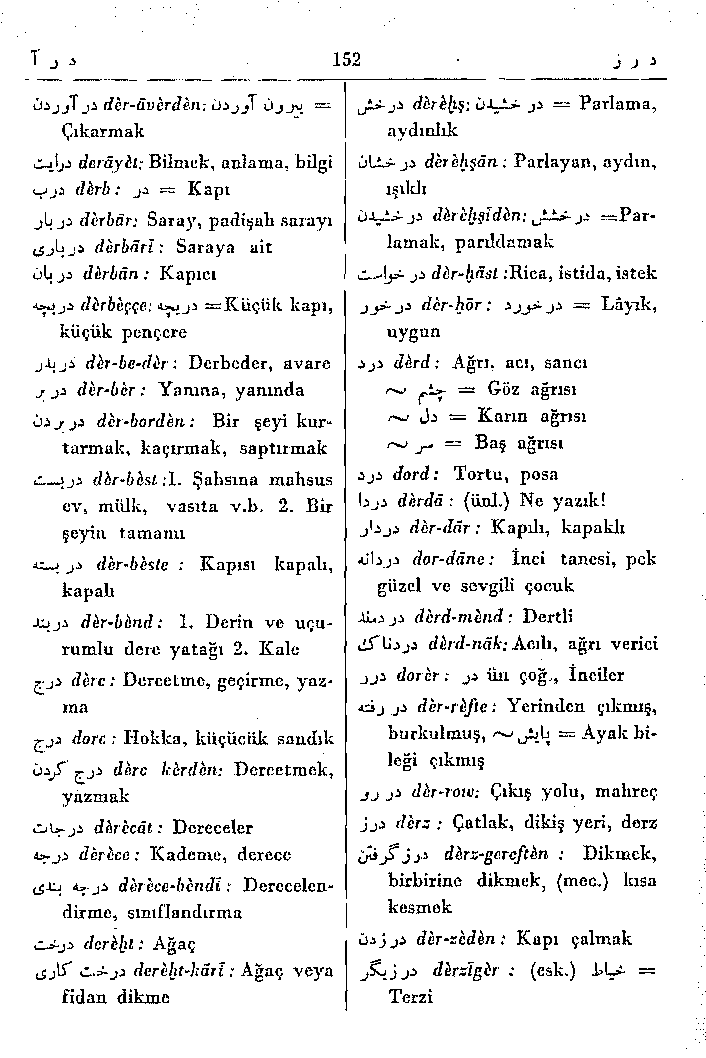 در آ
152
در ز
در آوردن dèr-āvèrdèn: بیرون آوردن =
Çıkarmak
درایت derāyèt: Bilmek, anlama, bilgi
درب dèrb : در = Kapı
دربار dèrbār: Saray, padişah sarayı
درباری dèrbārī : Saraya ait
دربان dèrbān : Kapıcı
دربچه dèrbèççe: دریچه =Küçük kapı,
küçük pençere
دربدر dèr-be-dèr : Derbeder, avare
در بر dèr-bèr : Yanına, yanında
در بردن dèr-bordèn : Bir şeyi kur-
tarmak, kaçırmak, saptırmak
دربست dèr-bèst :1. Şahsına mahsus
ev, mülk, vasıta v.b. 2. Bir
şeyin tamamı
در بسته dèr-bèste : Kapısı kapalı,
kapalı
دربند dèr-bènd : 1. Derin ve uçu-
rumlu dere yatağı 2. Kale
درج dèrc : Dercetme, geçirme, yaz-
ma
درج dorc : Hokka, küçücük sandık
درج کردن dèrc kèrdèn: Dercetmek,
yazmak
درجات dèrècāt : Dereceler
درجه dèrèce : Kademe, derece
درجه بندی dèrèce-bèndī : Derecelen-
dirme, sınıflandırma
درخت derèḫt : Ağaç
درخت کاری derèḫt-kārī : Ağaç veya
fidan dikme
درخش dèrèḫş: در خشیدن = Parlama,
aydınlık
در خشان dèrèḫşān : Parlayan, aydın,
ışıklı
در خشیدن dèrèḫşīdèn: در خشش =Par-
lamak, parıldamak
در خواست dèr-ḫāst :Rica, istida, istek
در خور dèr-ḫōr : در خورد = Lâyık,
uygun
درد dèrd : Ağrı, acı, sancı
~ چشم = Göz ağrısı
~ دل = Karın ağrısı
~ سر = Baş ağrısı
درد dord : Tortu, posa
دردا dèrdā : (ünl.) Ne yazık!
دردار dèr-dār : Kapılı, kapaklı
دردانه dor-dāne : İnci tanesi, pek
güzel ve sevgili çocuk
دردمند dèrd-mènd : Dertli
دردناك dèrd-nāk: Acılı, ağrı verici
درر dorèr : در ün çoğ., İnciler
در رفته dèr-rèfte : Yerinden çıkmış,
burkulmuş, ~ پایش = Ayak bi-
leği çıkmış
در رو dèr-row: Çıkış yolu, mahreç
درز dèrz : Çatlak, dikiş yeri, derz
درز گرفتن dèrz-gereftèn : Dikmek,
birbirine dikmek, (mec.) kısa
kesmek
در زدن dèr-zèdèn : Kapı çalmak
درزیگر dèrzīgèr : (esk.) خیاط =
Terzi